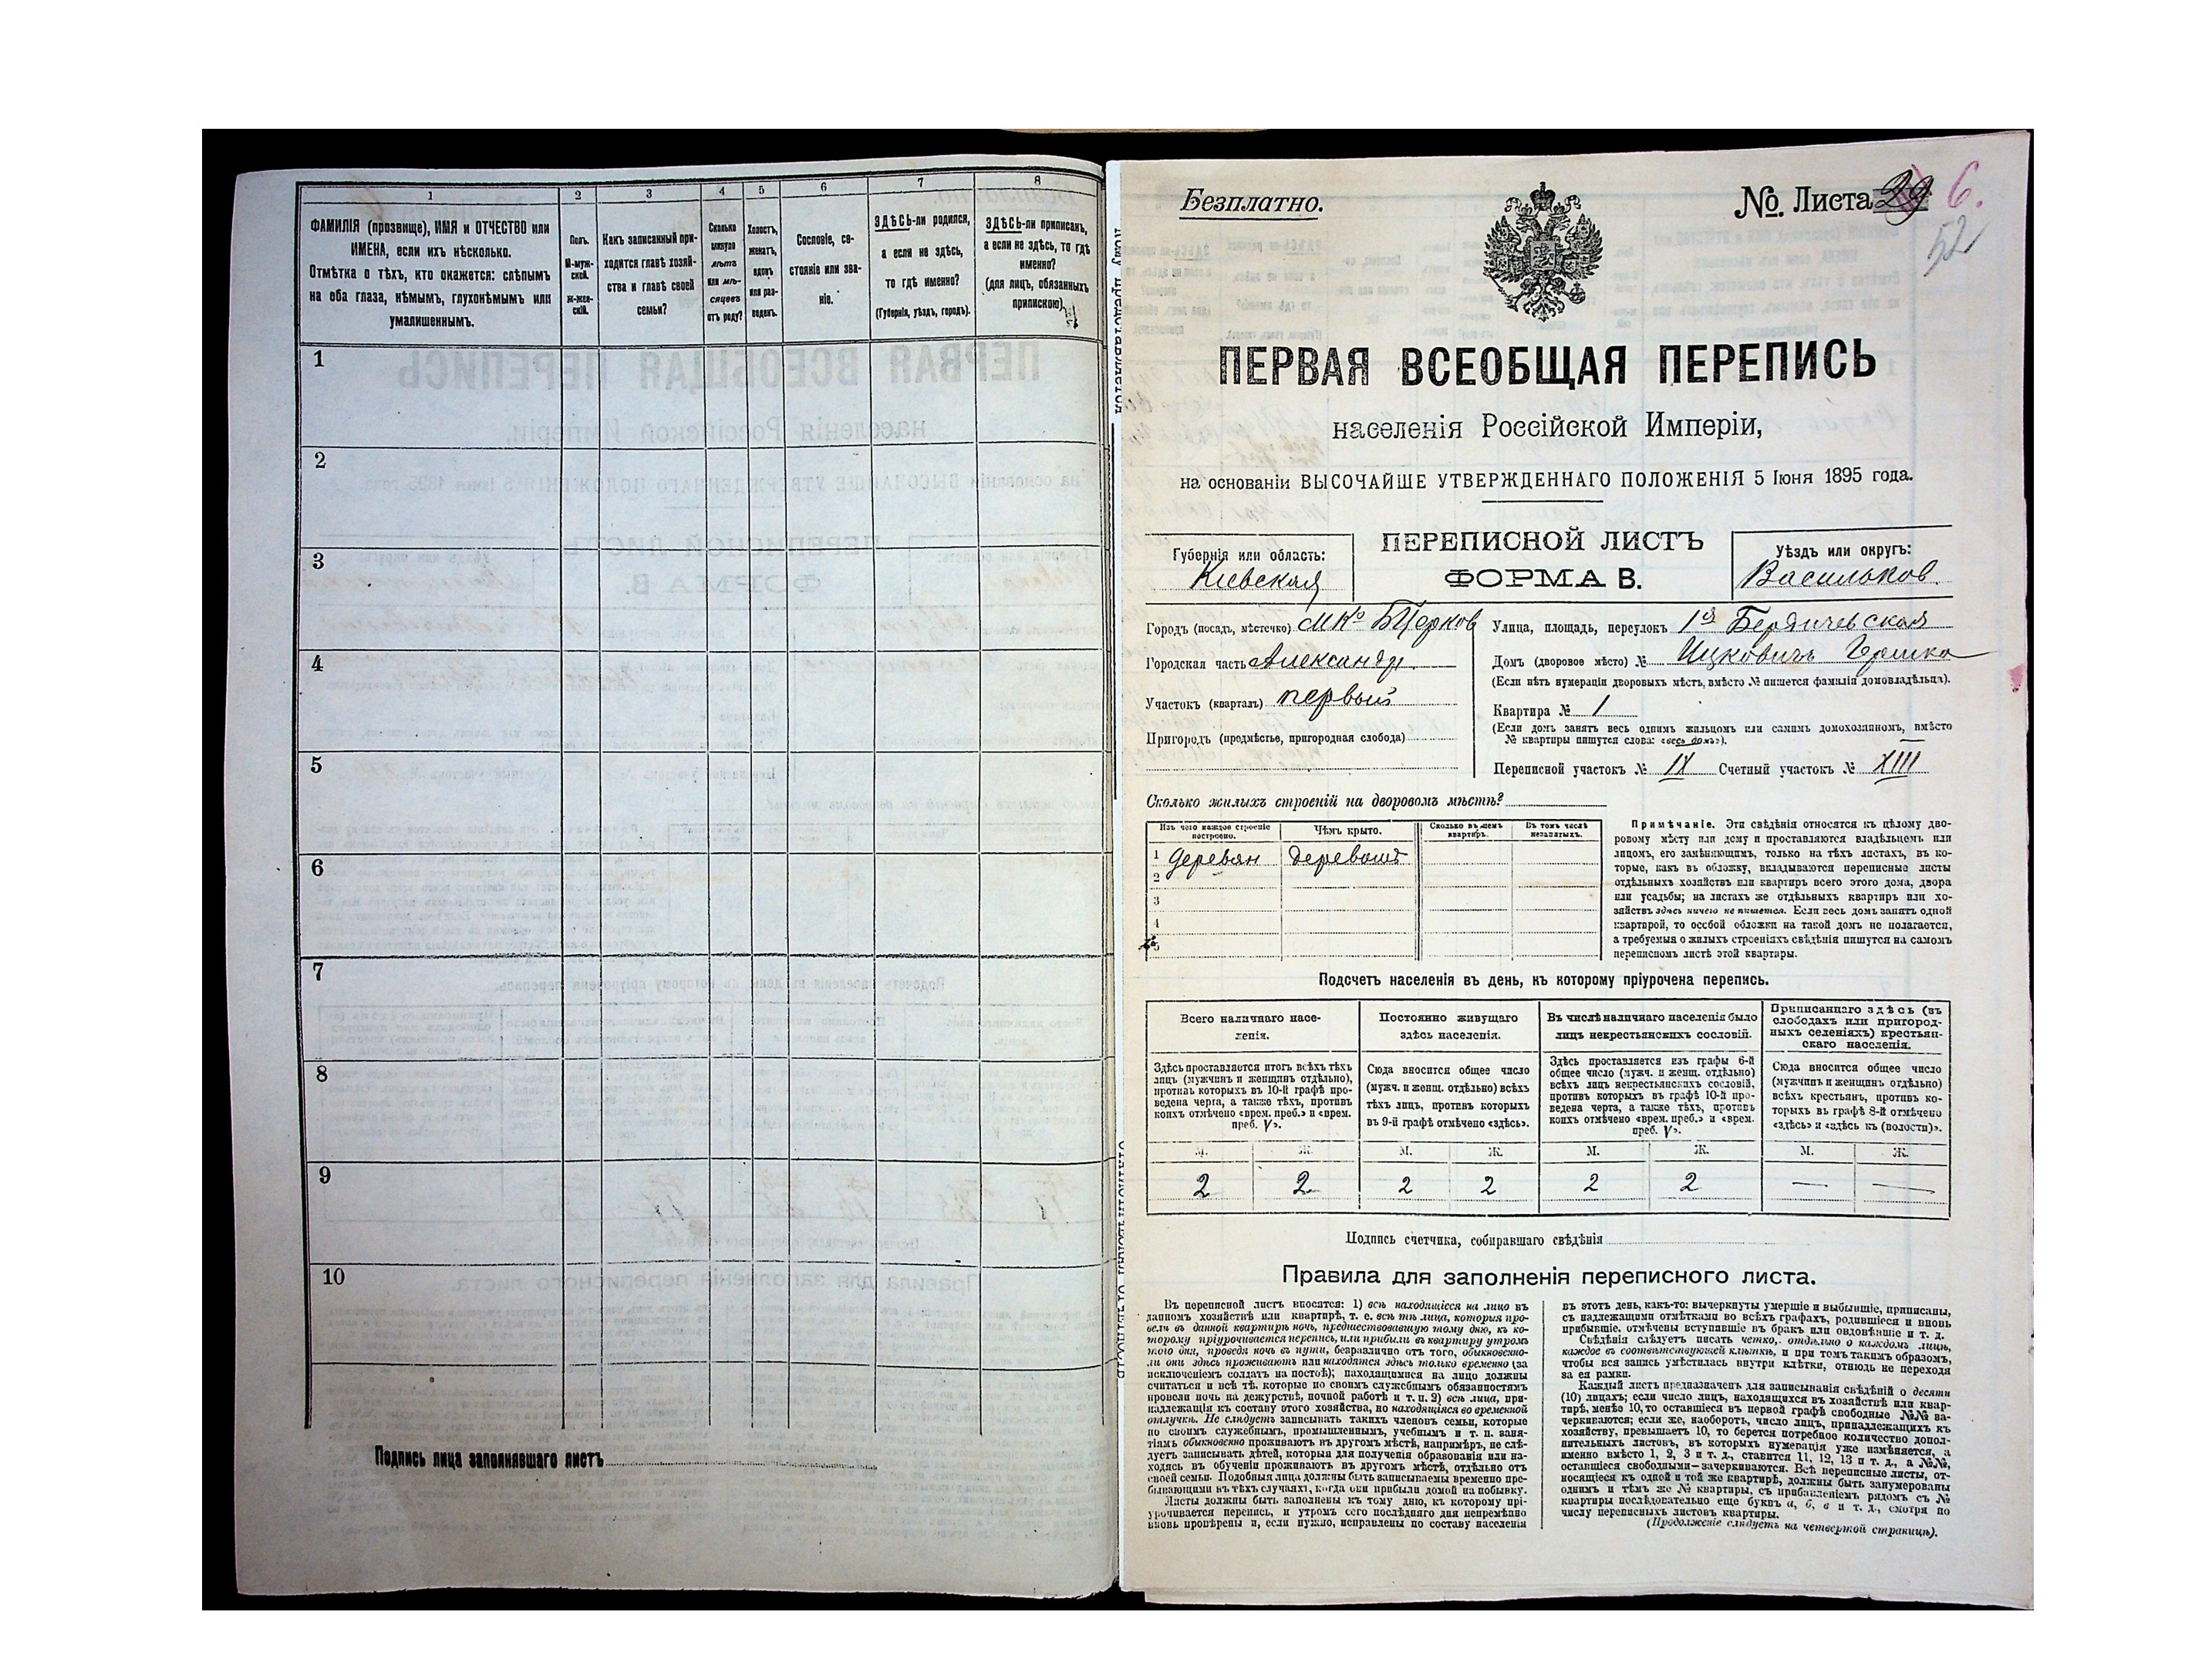 1
2
3
4
5
6
7
8
ФАМИЛІЯ (прозвище), ИМЯ и ОТЧЕСТВО или
ИМЕНА, если ихъ нѣсколько.
Отмѣтка о тѣхъ, кто окажется: слѣпымъ
на оба глаза, нѣмымъ, глухонѣмымъ или
умалишеннымъ.
Полъ.
М-муж-
ской.
Ж-жен-
скій.
Какъ записанный при-
ходится главѣ хозяй-
ства и главѣ своей
семьи?
Сколько
минуло
лѣтъ
или мѣ-
сяцевъ
отъ роду?
Холостъ,
женатъ,
вдовъ
или раз-
веденъ.
Сословіе, со-
стояніе или зва-
ніе.
ЗДѢСЬ-ли родился,
а если не здѣсь,
то гдѣ именно?
(Губернія, уѣздъ, городъ).
ЗДѢСЬ-ли приписанъ,
а если не здѣсь, то гдѣ
именно?
(для лицъ, обязанныхъ
припискою)
1
2
3
4
5
6
7
8
9
10
Подпись лица заполнявшаго листъ
Безплатно.
№ Листа 29 6.
52
ПЕРВАЯ ВСЕОБЩАЯ ПЕРЕПИСЬ
населенія Россійской Имперіи,
на основаніи ВЫСОЧАЙШЕ УТВЕРЖДЕННАГО ПОЛОЖЕНІЯ 5 Іюня 1895 года.
Губернія или область:
Кіевская
ПЕРЕПИСНОЙ ЛИСТЪ
ФОРМА В.
Уѣздъ или округъ:
Васильков.
Городъ (посадъ, мѣстечко) Мко БЦерков
Городская часть Александр.
Участокъ (кварталъ) первый
Пригородъ (предмѣстье, пригородная слобода)
Улица, площадь, переулокъ 1я Бердичевская
Домъ (дворовое мѣсто) № Ицковичъ Гершко
(Если нѣтъ нумераціи дворовыхъ мѣстъ, вмѣсто № пишется фамилія домовладѣльца).
Квартира № 1
(Если домъ занятъ весь однимъ жильцомъ или самимъ домохозяиномъ, вмѣсто
№ квартиры пишутся слова: «весь домъ»).
Переписной участокъ № IX Счетный участокъ № XIII
Сколько жилыхъ строеній на дворовомъ мѣстѣ?
Изъ чего каждое строеніе
построено.
Чѣмъ крыто.
Сколько въ нем
квартиръ.
Въ томъ числѣ
незанятыхъ.
1 деревян
2
3
4
5
Примѣчаніе. Эти свѣдѣнія относятся къ цѣлому дво-
ровому мѣсту или дому и проставляются владѣльцемъ или
лицомъ, его замѣняющимъ, только на тѣхъ листахъ, въ ко-
торые, какъ въ обложку, вкладываются переписные листы
отдѣльныхъ хозяйствъ или квартиръ всего этого дома, двора
или усадьбы; на листахъ же отдѣльныхъ квартиръ или хо-
зяйствъ здѣсь ничего не пишется. Если весь домъ занятъ одной
квартирой, то особой обложки на такой домъ не полагается,
а требуемыя о жилыхъ строеніяхъ свѣдѣнія пишутся на самомъ
переписномъ листѣ этой квартиры.
Подсчетъ населенія въ день, къ которому пріурочена перепись.
Всего наличнаго насе-
ленія.
Здѣсь проставляется итогъ всѣхъ тѣхъ
лицъ (мужчинъ и женщинъ отдѣльно),
противъ которыхъ въ 10-й графѣ про-
ведена черта, а также тѣхъ, противъ
коихъ отмѣчено «врем. преб.» и «врем.
преб. V».
Постоянно живущаго
здѣсь населенія.
Сюда вносится общее число
(мужч. и женщ. отдѣльно) всѣхъ
тѣхъ лицъ, противъ которыхъ
въ 9-й графѣ отмѣчено «здѣсь».
Въ числѣ наличнаго населенія было
лицъ некрестьянскихъ сословій.
Здѣсь проставляется изъ графы 6-й
общее число (мужч. и женщ. отдѣльно)
всѣхъ лицъ некрестьянскихъ сословій,
противъ которыхъ въ графѣ 10-й про-
ведена черта, а также тѣхъ, противъ
коихъ отмѣчено «врем. преб.» и «врем.
преб. V».
Приписаннаго здѣсь (въ
слободахъ или пригород-
ныхъ селеніяхъ) крестьян-
скаго населенія.
Сюда вносится общее число
(мужчинъ и женщинъ отдѣльно)
всѣхъ крестьянъ, противъ ко-
торыхъ въ графѣ 8-й отмѣчено
«здѣсь» и «здѣсь къ (волости)».
М. Ж. М. Ж. М. Ж. М. Ж.
2 2 2 2 2 2 — —
Подпись счетчика, собиравшаго свѣдѣнія
Правила для заполненія переписного листа.
Въ переписной листъ вносятся: 1) всѣ находящіеся на лицо въ
данномъ хозяйствѣ или квартирѣ, т. е. всѣ тѣ лица, которыя про-
вели въ данной квартирѣ ночь, предшествовавшую тому дню, къ ко-
торому пріурочивается перепись, или прибыли въ квартиру утромъ
того дня, проведя ночь въ пути, безразлично отъ того, обыкновенно-
ли они здѣсь проживаютъ или находятся здѣсь только временно (за
исключеніемъ солдатъ на постоѣ); находящимися на лицо должны
считаться и всѣ тѣ, которые по своимъ служебнымъ обязанностямъ
провели ночь на дежурствѣ, ночной работѣ и т. п. 2) всѣ лица, при-
надлежащія къ составу этого хозяйства, но находящіяся во временной
отлучкѣ. Не слѣдуетъ записывать такихъ членовъ семьи, которые
по своимъ служебнымъ, промышленнымъ, учебнымъ и т. п. заня-
тіямъ обыкновенно проживаютъ въ другомъ мѣстѣ, напримѣръ, не слѣ-
дуетъ записывать дѣтей, которыя для полученія образованія или на-
ходясь въ обученіи проживаютъ въ другомъ мѣстѣ, отдѣльно отъ
своей семьи. Подобныя лица должны быть записываемы временно пре-
бывающими въ тѣхъ случаяхъ, когда они прибыли домой на побывку.
Листы должны быть заполнены къ тому дню, къ которому прі-
урочивается перепись, и утромъ сего послѣдняго дня непремѣнно
вновь провѣрены и, если нужно, исправлены по составу населенія
въ этотъ день, какъ-то: вычеркнуты умершіе и выбывшіе, приписаны,
съ надлежащими отмѣтками во всѣхъ графахъ, родившіеся и вновь
прибывшіе, отмѣчены вступившіе въ бракъ или овдовѣвшіе и т. д.
Свѣдѣнія слѣдуетъ писать четко, отдѣльно о каждомъ лицѣ,
каждое въ соотвѣтствующей клѣткѣ, и при томъ такимъ образомъ,
чтобы вся запись умѣстилась внутри клѣтки, отнюдь не переходя
за ея рамки.
Каждый листъ предназначенъ для записыванія свѣдѣній о десяти
(10) лицахъ; если число лицъ, находящихся въ хозяйствѣ или квар-
тирѣ, менѣе 10, то оставшіеся въ первой графѣ свободные №№ за-
черкиваются; если же, наоборотъ, число лицъ, принадлежащихъ къ
хозяйству, превышаетъ 10, то берется потребное количество допол-
нительныхъ листовъ, въ которыхъ нумерація уже измѣняется, а
именно вмѣсто 1, 2, 3 и т. д., ставится 11, 12, 13 и т. д., а №№,
оставшіеся свободными—зачеркиваются. Всѣ переписные листы, от-
носящіеся къ одной и той же квартирѣ, должны быть занумерованы
однимъ и тѣмъ же № квартиры, съ прибавленіемъ рядомъ съ №
квартиры послѣдовательно еще буквъ а, б, в и т. д., смотря по
числу переписныхъ листовъ квартиры.
(Продолженіе слѣдуетъ на четвертой страницѣ).